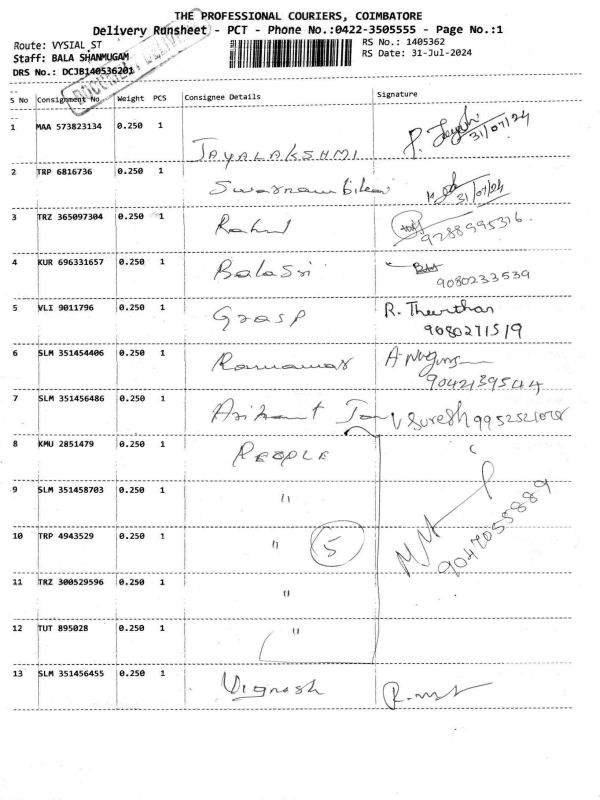 THE PROFESSIONAL COURIERS, COIMBATORE
Delivery Runsheet - PCT - Phone No.:0422-3505555 - Page No.:1
Route: VYSIAL ST
RS No.: 1405362
Staff: BALA SHANMUGAM
RS Date: 31-Jul-2024
DRS No.: DCJB140536201
DOCUMENT
S No Consignment No Weight PCS Consignee Details Signature
1 MAA 573823134 0.250 1 JAYALAKSHMI 31/07/24
2 TRP 6816736 0.250 1 31/07/24
3 TRZ 365097304 0.250 1 Rahul 9288995316
4 KUR 696331657 0.250 1 BalaSri 9080233539
5 VLI 9011796 0.250 1 Grasp R. Theerthan
9080271519
6 SLM 351454406 0.250 1
9042139544
7 SLM 351456486 0.250 1 Arihant V Suresh
8 KMU 2851479 0.250 1 PEOPLE
9 SLM 351458703 0.250 1 "
10 TRP 4943529 0.250 1 " 5
9047055889
11 TRZ 300529596 0.250 1 "
12 TUT 895028 0.250 1 "
13 SLM 351456455 0.250 1 Vignesh